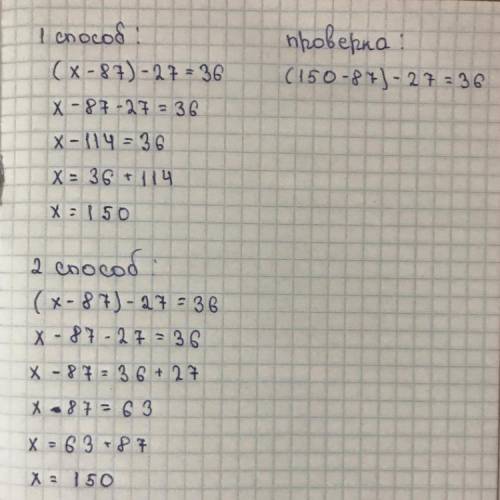 1 способ:
(х - 87) - 27 = 36
х - 87 - 27 = 36
х - 114 = 36
х = 36 + 114
х = 150
проверка:
(150 - 87) - 27 = 36
2 способ:
(х - 87) - 27 = 36
х - 87 - 27 = 36
х - 87 = 36 + 27
х - 87 = 63
х = 63 + 87
х = 150